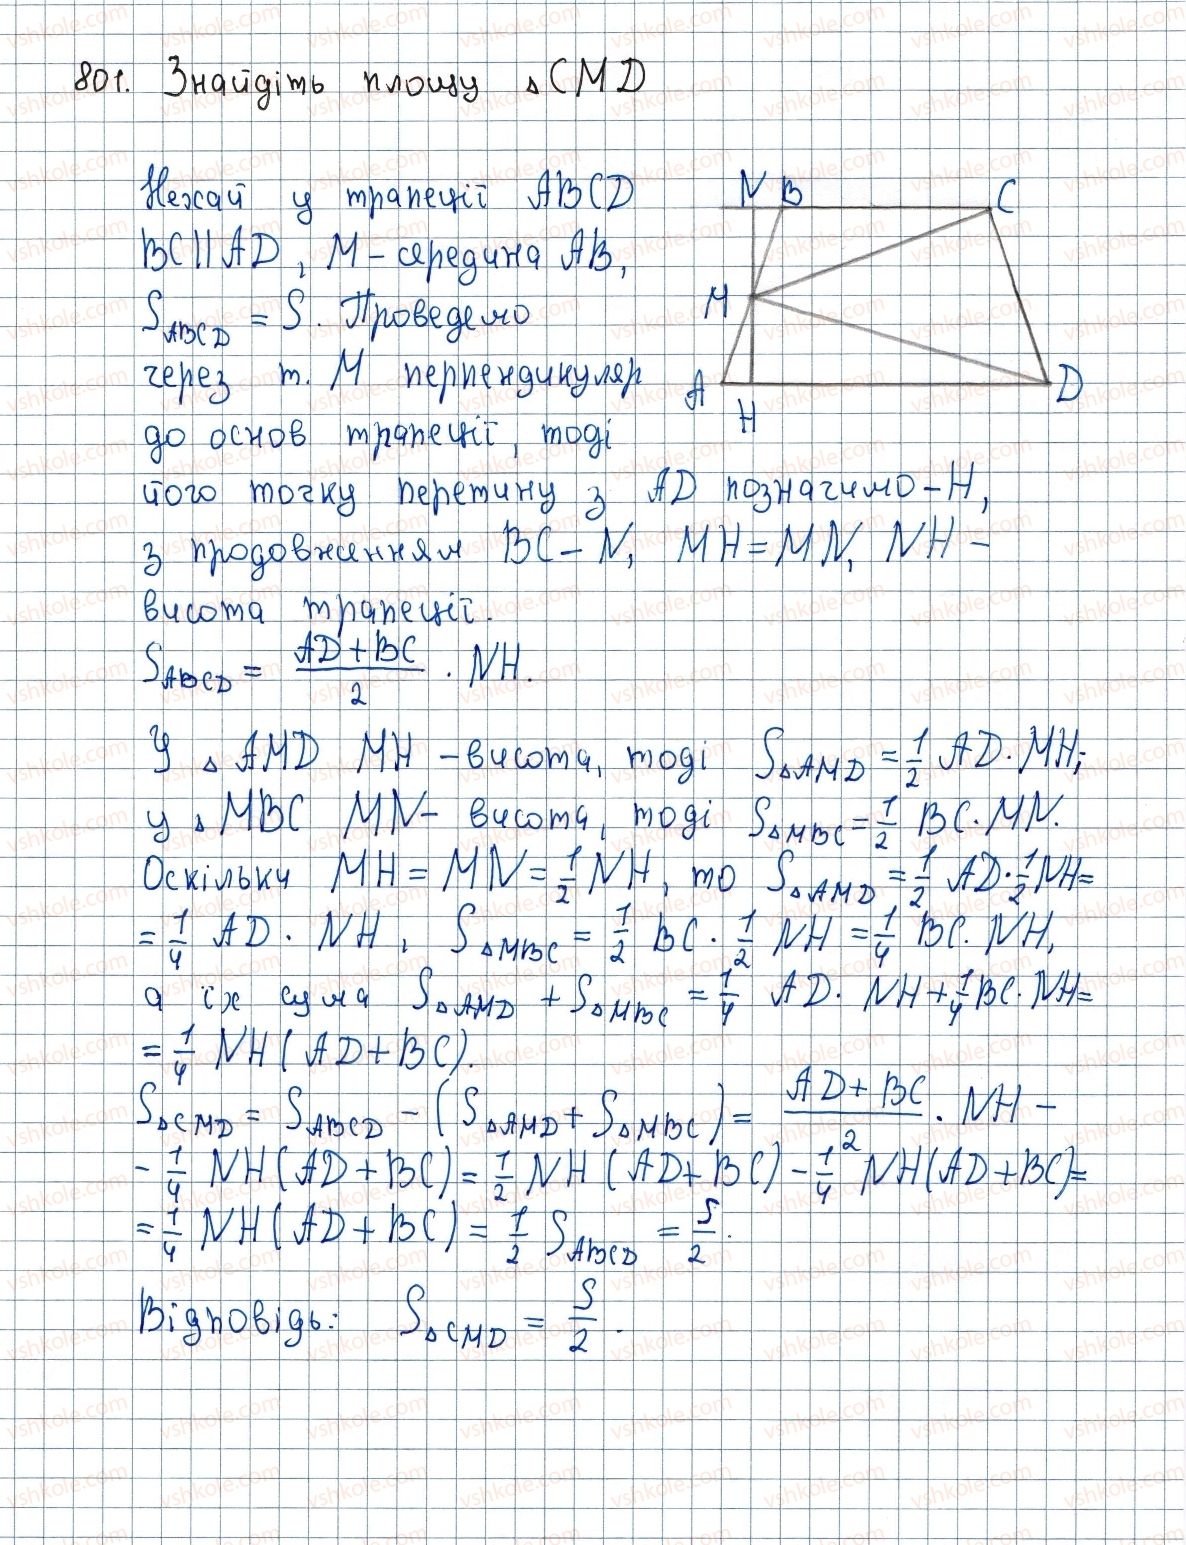 801. Знайдіть площу △CMD
Нехай у трапеції ABCD
BC||AD, M – середина AB,
S_ABCD = S. Проведемо
через т. M перпендикуляр
до основ трапеції, тоді
його точку перетину з AD позначимо – H,
з продовженням BC – N, MH = MN, NH –
висота трапеції.
S_ABCD = (AD + BC)/2 · NH.
У △AMD MH – висота, тоді S_△AMD = 1/2 AD · MH;
у △MBC MN – висота, тоді S_△MBC = 1/2 BC · MN.
Оскільки MH = MN = 1/2 NH, то S_△AMD = 1/2 AD · 1/2 NH =
= 1/4 AD · NH, S_△MBC = 1/2 BC · 1/2 NH = 1/4 BC · NH,
а їх сума S_△AMD + S_△MBC = 1/4 AD · NH + 1/4 BC · NH =
= 1/4 NH (AD + BC).
S_△CMD = S_ABCD – (S_△AMD + S_△MBC) = (AD + BC)/2 · NH –
– 1/4 NH (AD + BC) = 1/2 NH (AD + BC) – 1/4 NH (AD + BC) =
= 1/4 NH (AD + BC) = 1/2 S_ABCD = S/2.
Відповідь: S_△CMD = S/2.
N B C
M
A H D
vshkole.com